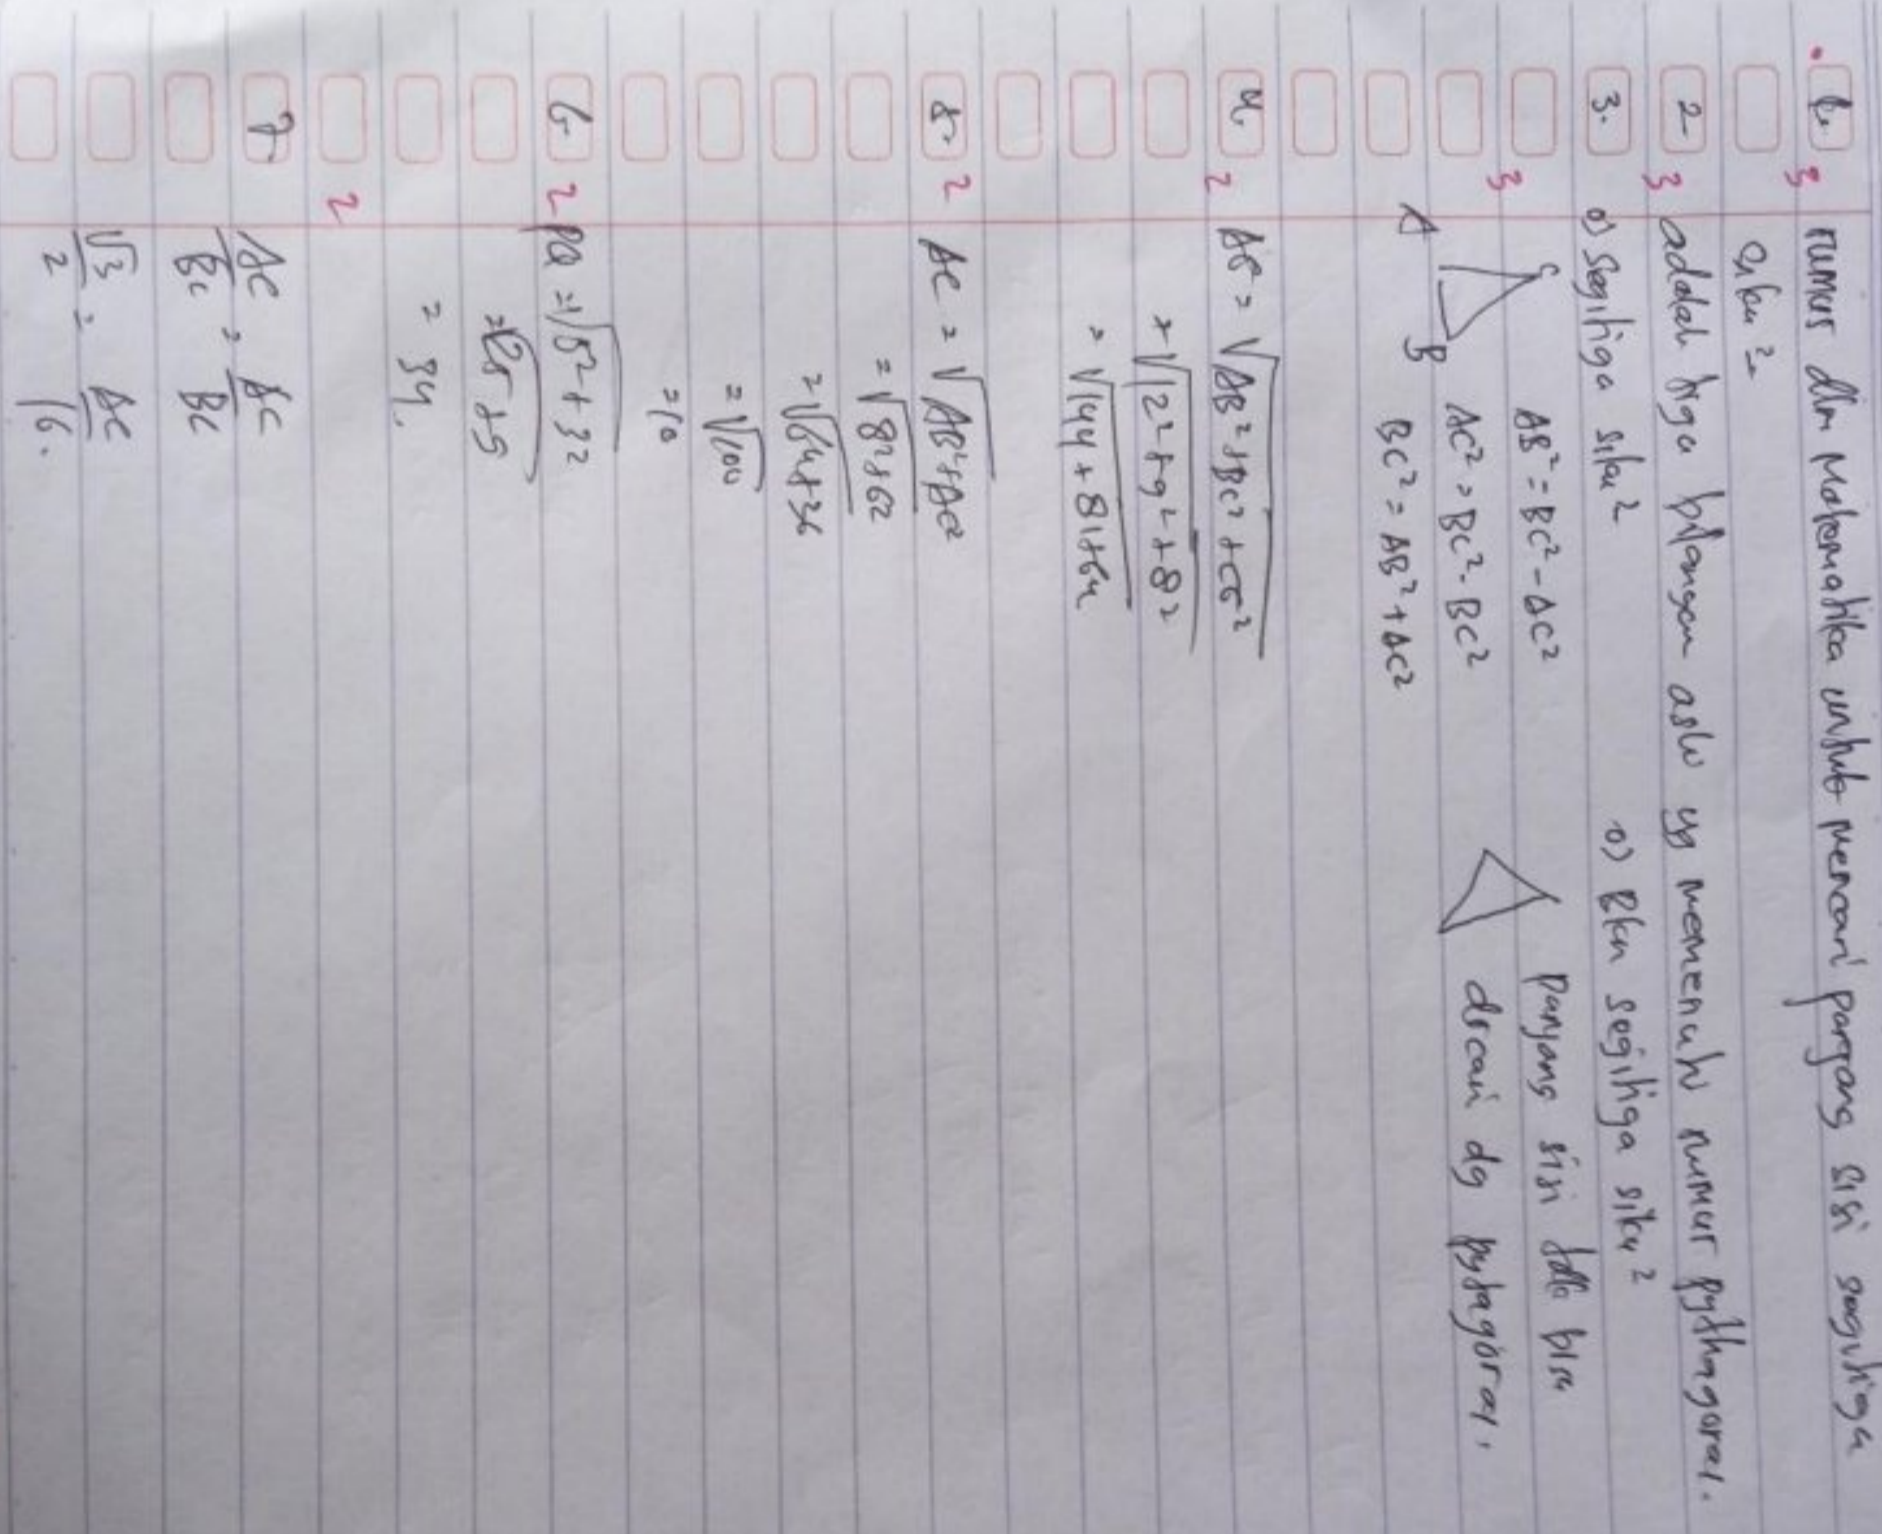 1. 3 rumus dlm Matematika untuk mencari panjang sisi segitiga
siku²
2 3 adalah tiga bilangan asli yg memenuhi rumus pythagoras.
3. o) segitiga siku² o) Bkn segitiga siku²
3 C AB² = BC² - AC² panjang sisi tdk bisa
A B AC² = BC² - BC² dicari dg pytagoras.
BC² = AB² + AC²
4. 2 AG = √AB²+BC²+CG²
= √12²+9²+8²
= √144+81+64
5. 2 AC = √AB²+AC²
= √8²+62
= √64+36
= √100
= 10
6. 2 PQ = √5²+32
= √25+9
= 34.
2
7. AC/BC = AC/BC
√3/2 = AC/16.